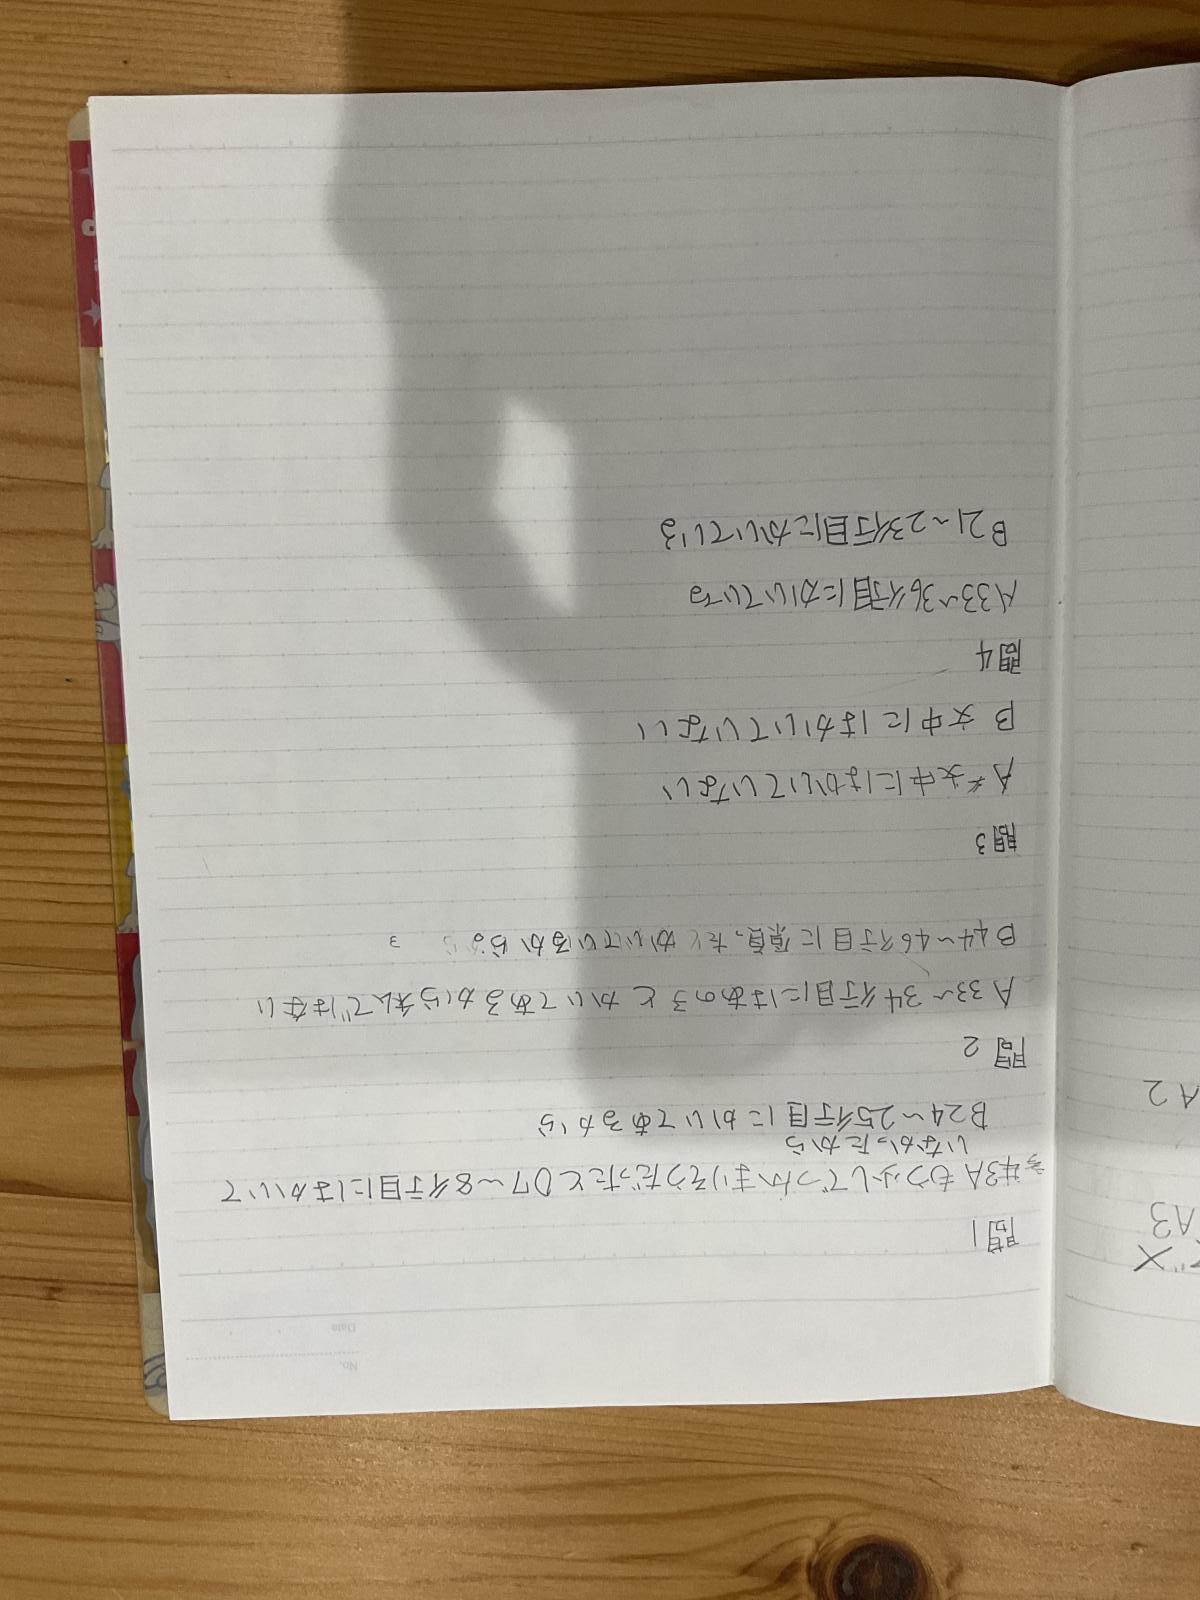 No.
Date
問1
A もう少しでつかまりそうだったと07〜8行目にはかいて
いなかったから
B24〜25行目にかいてあるから
問2
A 33〜34行目にはあの子とかいてあるから私ではない
B44〜46行目に かいているから。
3
問3
A 文中にはかいていない
B 文中にはかいていない
問4
A33〜36行目にかいている
B21〜23行目にかいている
X
A3
A2